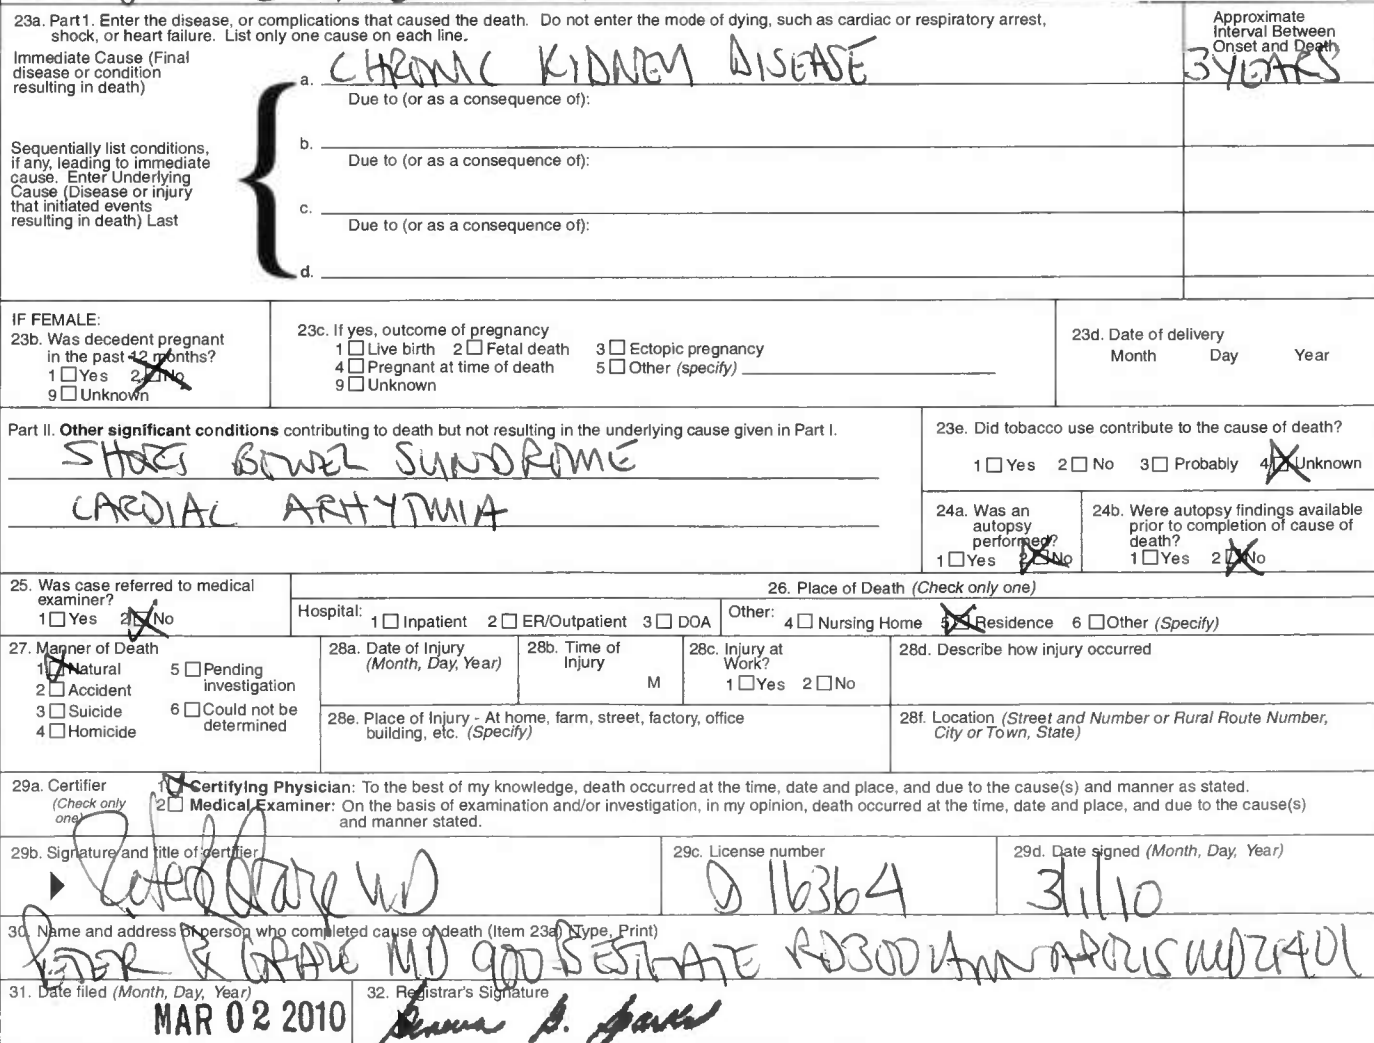 23a. Part1. Enter the disease, or complications that caused the death. Do not enter the mode of dying, such as cardiac or respiratory arrest,
shock, or heart failure. List only one cause on each line.
Approximate
Interval Between
Onset and Death
Immediate Cause (Final
disease or condition
resulting in death)
a. CHRONIC KIDNEY DISEASE
3 YEARS
Due to (or as a consequence of):
b.
Due to (or as a consequence of):
Sequentially list conditions,
if any, leading to immediate
cause. Enter Underlying
Cause (Disease or injury
that initiated events
resulting in death) Last
c.
Due to (or as a consequence of):
d.
IF FEMALE:
23b. Was decedent pregnant
in the past 12 months?
1 Yes 2 No
9 Unknown
23c. If yes, outcome of pregnancy
1 Live birth 2 Fetal death 3 Ectopic pregnancy
4 Pregnant at time of death 5 Other (specify)
9 Unknown
23d. Date of delivery
Month Day Year
Part II. Other significant conditions contributing to death but not resulting in the underlying cause given in Part I.
SHORT BOWEL SYNDROME
CARDIAC ARHYTMIA
23e. Did tobacco use contribute to the cause of death?
1 Yes 2 No 3 Probably 4 Unknown
24a. Was an
autopsy
performed?
1 Yes 2 No
24b. Were autopsy findings available
prior to completion of cause of
death?
1 Yes 2 No
25. Was case referred to medical
examiner?
1 Yes 2 No
26. Place of Death (Check only one)
Hospital: 1 Inpatient 2 ER/Outpatient 3 DOA Other: 4 Nursing Home 5 Residence 6 Other (Specify)
27. Manner of Death
1 Natural 5 Pending
investigation
2 Accident
3 Suicide 6 Could not be
determined
4 Homicide
28a. Date of Injury
(Month, Day, Year)
28b. Time of
Injury
M
28c. Injury at
Work?
1 Yes 2 No
28d. Describe how injury occurred
28e. Place of Injury - At home, farm, street, factory, office
building, etc. (Specify)
28f. Location (Street and Number or Rural Route Number,
City or Town, State)
29a. Certifier
(Check only
one)
1 Certifying Physician: To the best of my knowledge, death occurred at the time, date and place, and due to the cause(s) and manner as stated.
2 Medical Examiner: On the basis of examination and/or investigation, in my opinion, death occurred at the time, date and place, and due to the cause(s)
and manner stated.
29b. Signature and title of certifier
MD
29c. License number
D 16364
29d. Date signed (Month, Day, Year)
3/1/10
30. Name and address of person who completed cause of death (Item 23a) (Type, Print)
PETER R GRAZE MD 900 BESTGATE RD 300 ANNAPOLIS MD 21401
31. Date filed (Month, Day, Year)
MAR 02 2010
32. Registrar's Signature